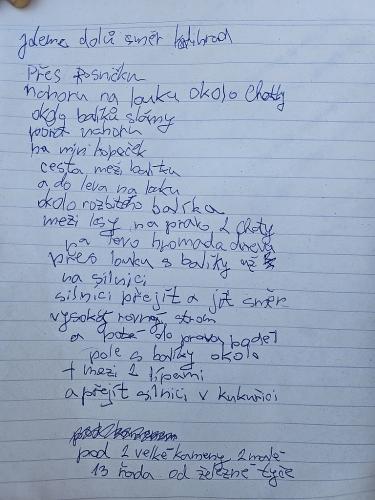 jdeme dolů směr
Přes Rosničku
nahoru na louku okolo chaty
okolo balíků slámy
pořád nahoru
na mini kopeček
cesta mezi balíky
a do leva na louku
okolo rozbitého balíka
mezi lesy na pravo 2 chaty
na levo hromada dřeva
přes louku s balíky až
na silnici
silnici přejít a jít směr
vysoký rovný strom
a poté do prava
pole s balíky okolo
+ mezi 2 lípami
a přejít silnici v kukuřici
pod 2 velké kameny 2 malé
13 řada od železné tyče